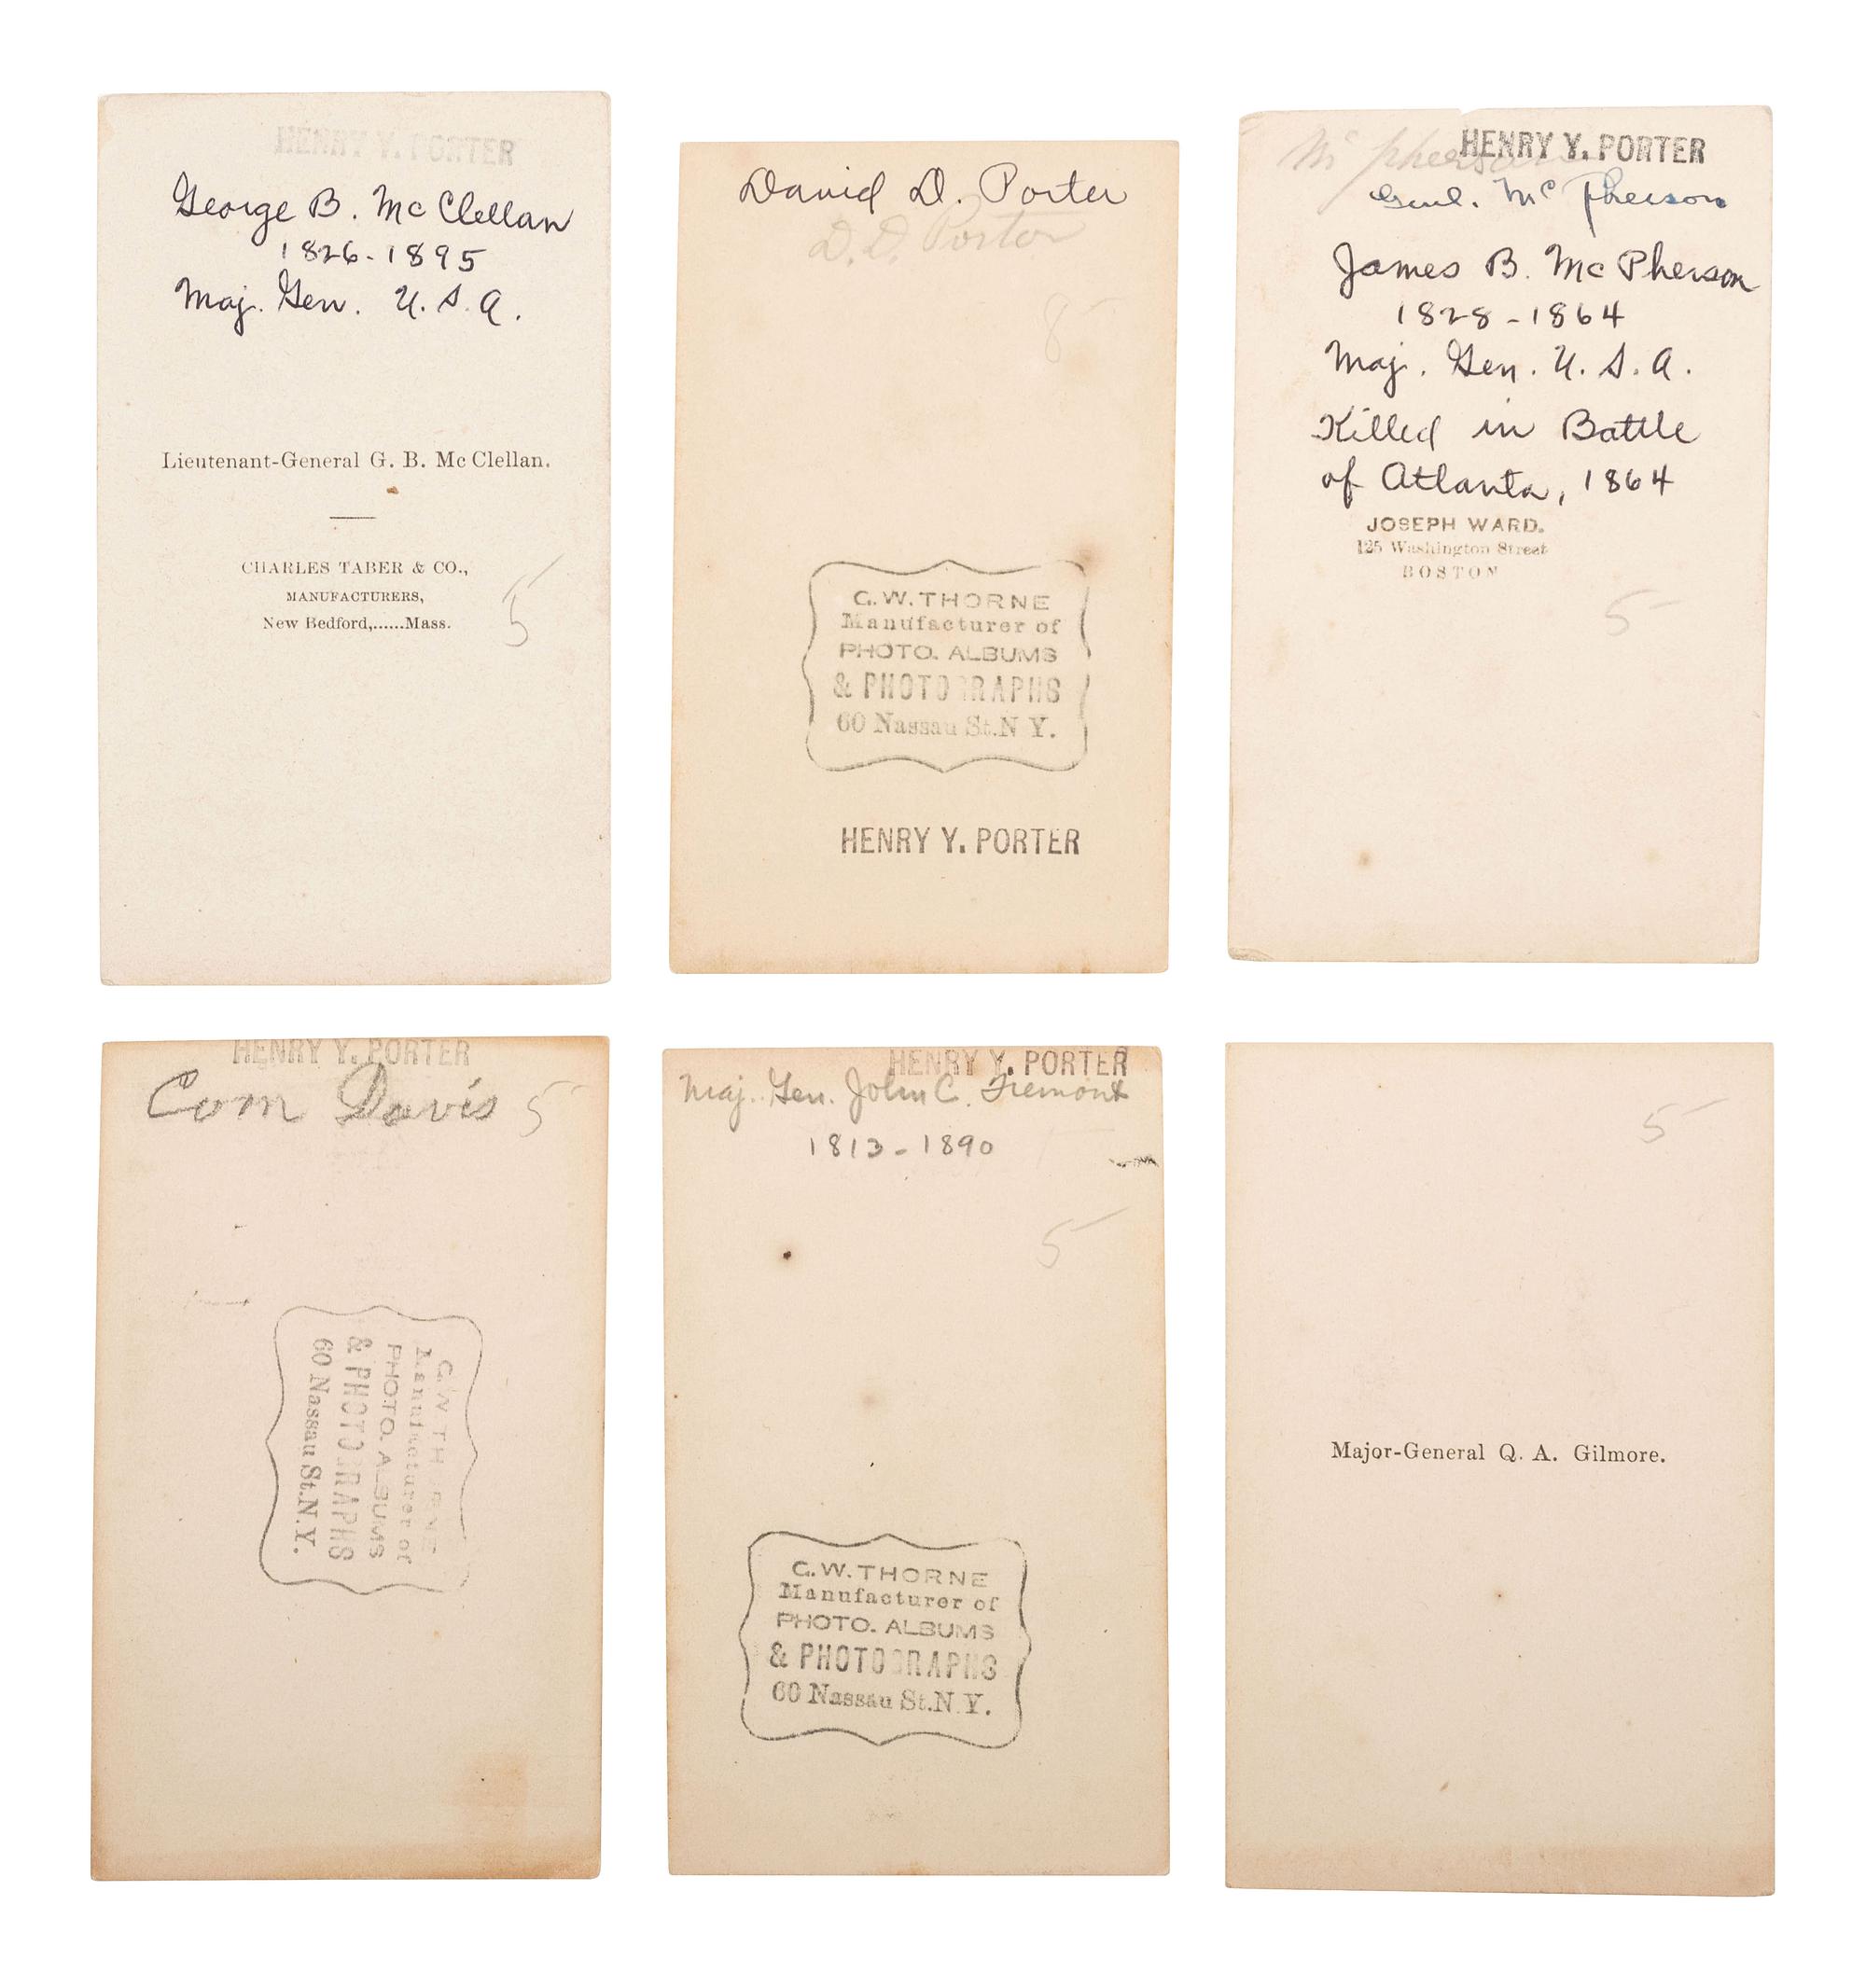 HENRY Y. PORTER
George B. McClellan
1826-1895
Maj. Gen. U.S.A.
Lieutenant-General G. B. Mc Clellan.
CHARLES TABER & CO.,
MANUFACTURERS,
New Bedford,......Mass.
5
David D. Porter
D. D. Porter
8
G. W. THORNE
Manufacturer of
PHOTO. ALBUMS
& PHOTOGRAPHS
60 Nassau St. N Y.
HENRY Y. PORTER
McPherson
HENRY Y. PORTER
Genl. McPherson
James B. McPherson
1828-1864
Maj. Gen. U.S.A.
Killed in Battle
of Atlanta, 1864
JOSEPH WARD.
125 Washington Street
BOSTON
5
HENRY Y. PORTER
Com Davis 5
G. W. THORNE
Manufacturer of
PHOTO. ALBUMS
& PHOTOGRAPHS
60 Nassau St. N. Y.
HENRY Y. PORTER
Maj. Gen. John C. Fremont
1813-1890
5
G. W. THORNE
Manufacturer of
PHOTO. ALBUMS
& PHOTOGRAPHS
60 Nassau St. N. Y.
5
Major-General Q. A. Gilmore.